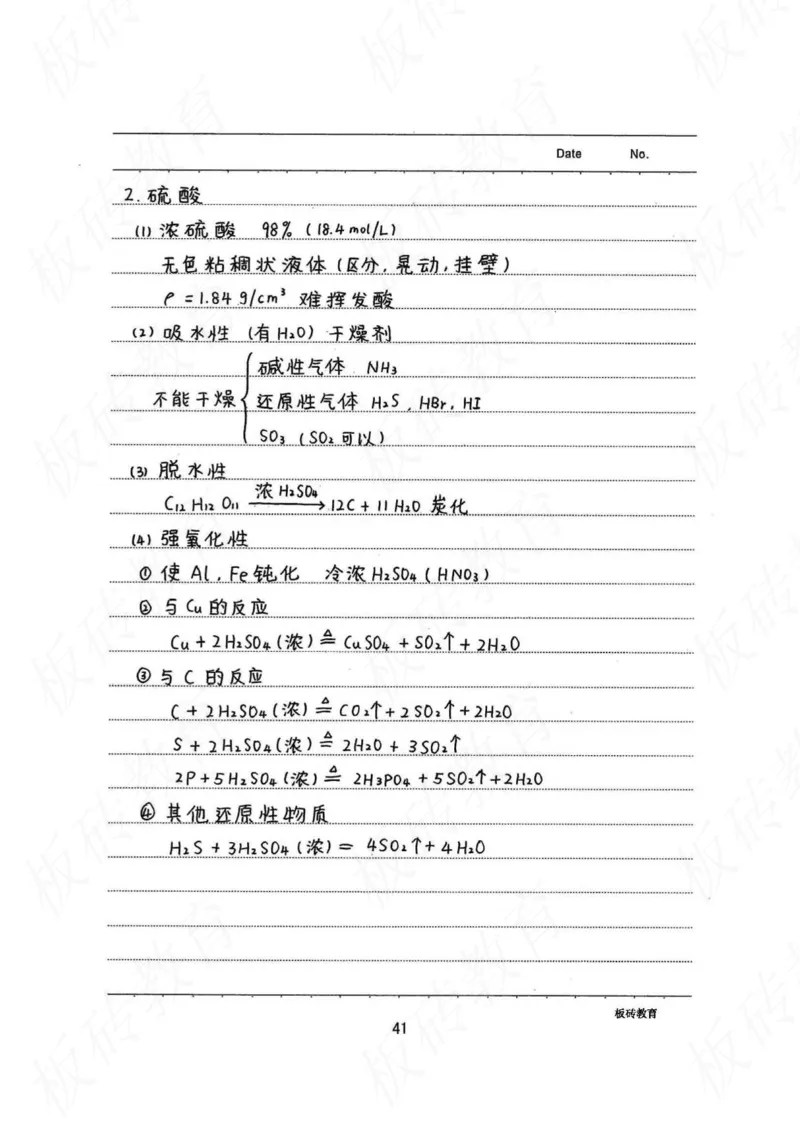 Date No.
2. 硫酸
(1) 浓硫酸 98% (18.4 mol/L)
无色粘稠状液体 (区分, 晃动, 挂壁)
ρ = 1.84 g/cm³ 难挥发酸
(2) 吸水性 (有H₂O) 干燥剂
碱性气体 NH₃
不能干燥 { 还原性气体 H₂S, HBr, HI
SO₃ (SO₂可以)
(3) 脱水性
C₁₂H₁₂O₁₁ —浓H₂SO₄→ 12C + 11H₂O 炭化
(4) 强氧化性
① 使 Al, Fe钝化 冷浓H₂SO₄ (HNO₃)
② 与Cu的反应
Cu + 2H₂SO₄(浓) ≜ CuSO₄ + SO₂↑ + 2H₂O
③ 与 C 的反应
C + 2H₂SO₄(浓) ≜ CO₂↑ + 2SO₂↑ + 2H₂O
S + 2H₂SO₄(浓) ≜ 2H₂O + 3SO₂↑
2P + 5H₂SO₄(浓) ≜ 2H₃PO₄ + 5SO₂↑ + 2H₂O
④ 其他还原性物质
H₂S + 3H₂SO₄(浓) = 4SO₂↑ + 4H₂O
板砖教育
41